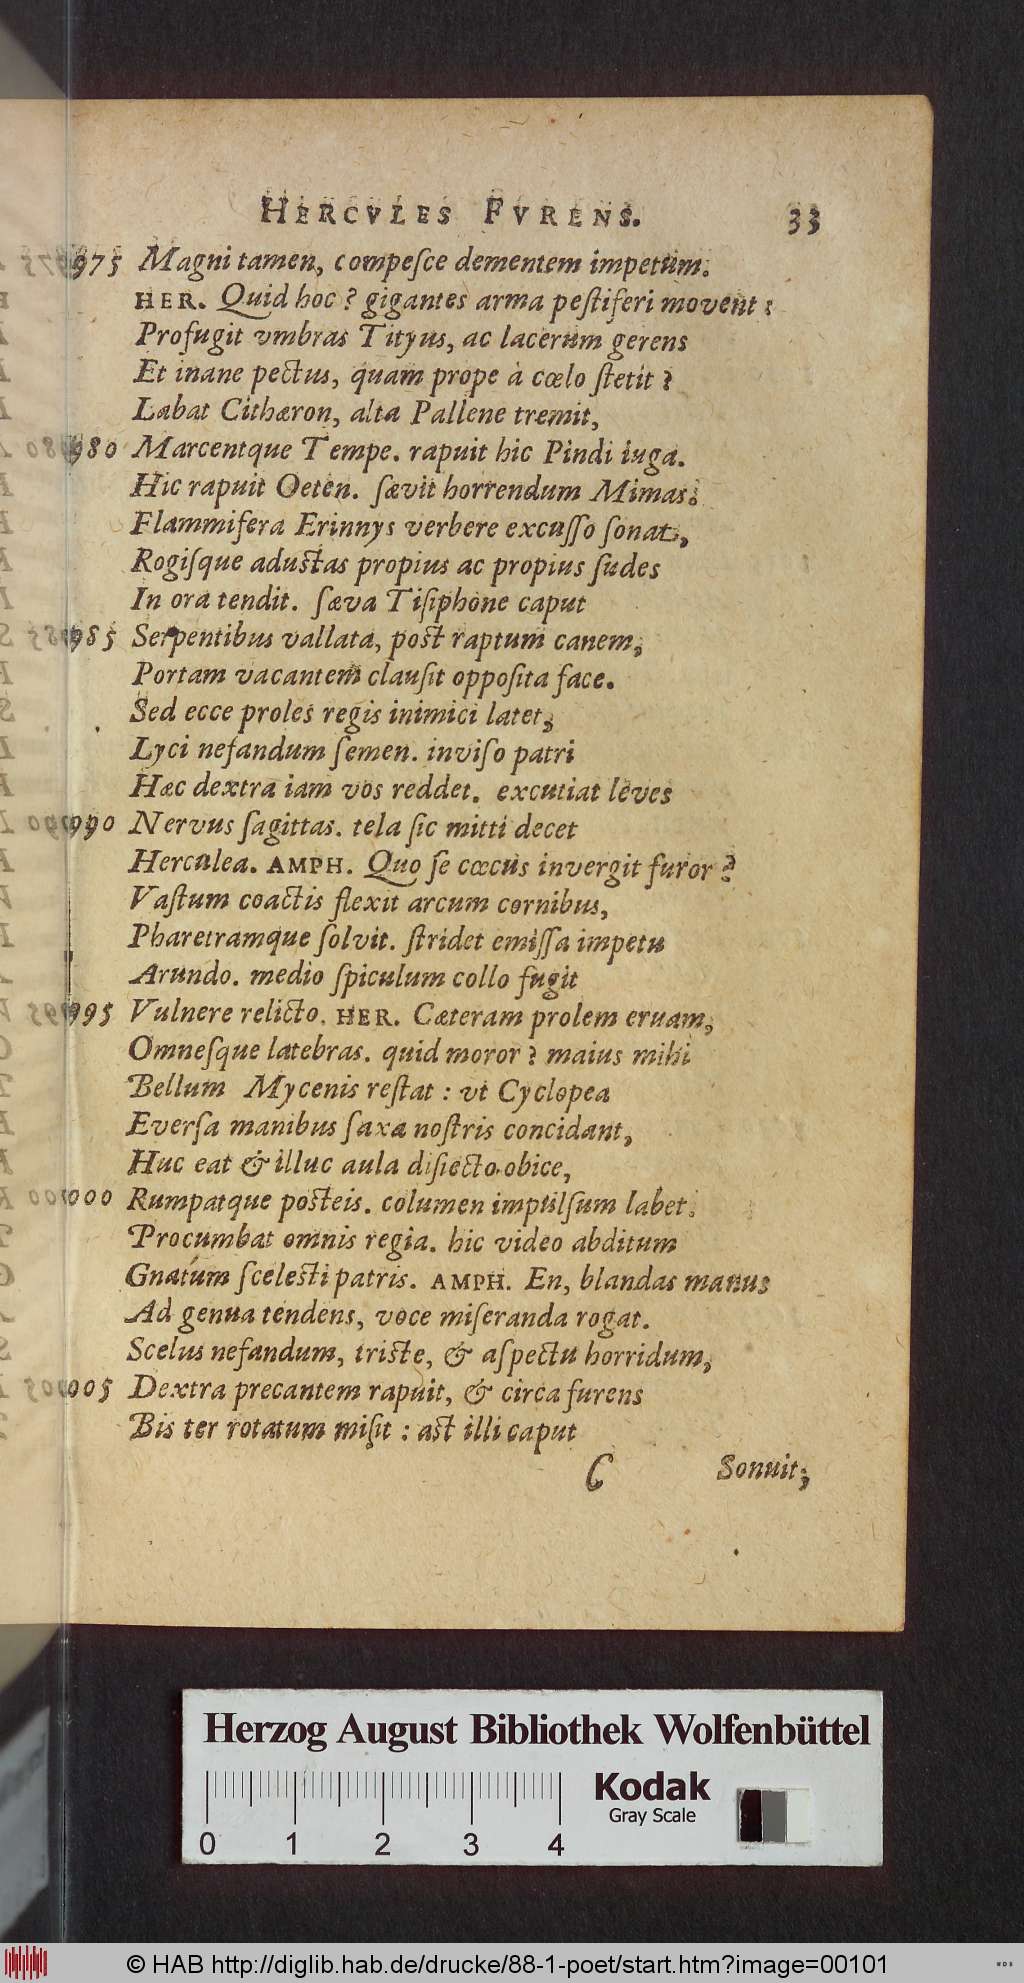 HERCVLES FVRENS. 33
975 Magni tamen, compeſce dementem impetum.
HER. Quid hoc? gigantes arma peſtiferi movent:
Profugit vmbras Tityus, ac lacerum gerens
Et inane pectus, quam prope à cœlo ſtetit?
Labat Cithæron, alta Pallene tremit,
980 Marcentque Tempe. rapuit hic Pindi iuga.
Hic rapuit Oeten. ſævit horrendum Mimas:
Flammifera Erinnys verbere excuſſo ſonat,
Rogiſque aduſtas propius ac propius ſudes
In ora tendit. ſæva Tiſiphone caput
985 Serpentibus vallata, poſt raptum canem,
Portam vacantem clauſit oppoſita face.
Sed ecce proles regis inimici latet,
Lyci nefandum ſemen. inviſo patri
Hæc dextra iam vos reddet. excutiat leves
990 Nervus ſagittas. tela ſic mitti decet
Herculea. AMPH. Quo ſe cœcus invergit furor?
Vaſtum coactis flexit arcum cornibus,
Pharetramque ſolvit. ſtridet emiſſa impetu
Arundo. medio ſpiculum collo fugit
995 Vulnere relicto. HER. Cæteram prolem eruam,
Omneſque latebras. quid moror? maius mihi
Bellum Mycenis reſtat: vt Cyclopea
Everſa manibus ſaxa noſtris concidant,
Huc eat & illuc aula diſiecto obice,
1000 Rumpatque poſteis. columen impulſum labet.
Procumbat omnis regia. hic video abditum
Gnatúm ſceleſti patris. AMPH. En, blandas manus
Ad genua tendens, voce miſeranda rogat.
Scelus nefandum, triſte, & aſpectu horridum,
1005 Dextra precantem rapuit, & circa furens
Bis ter rotatum miſit: aſt illi caput
C Sonuit,
Herzog August Bibliothek Wolfenbüttel
Kodak
Gray Scale
0 1 2 3 4
© HAB http://diglib.hab.de/drucke/88-1-poet/start.htm?image=00101